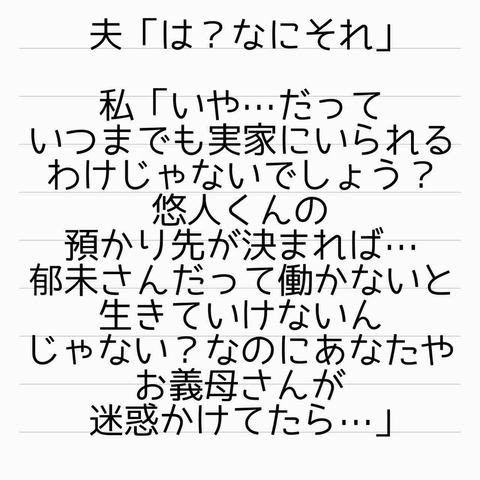 夫「は？なにそれ」
私「いや…だって
いつまでも実家にいられる
わけじゃないでしょう？
悠人くんの
預かり先が決まれば…
郁未さんだって働かないと
生きていけないん
じゃない？なのにあなたや
お義母さんが
迷惑かけてたら…」